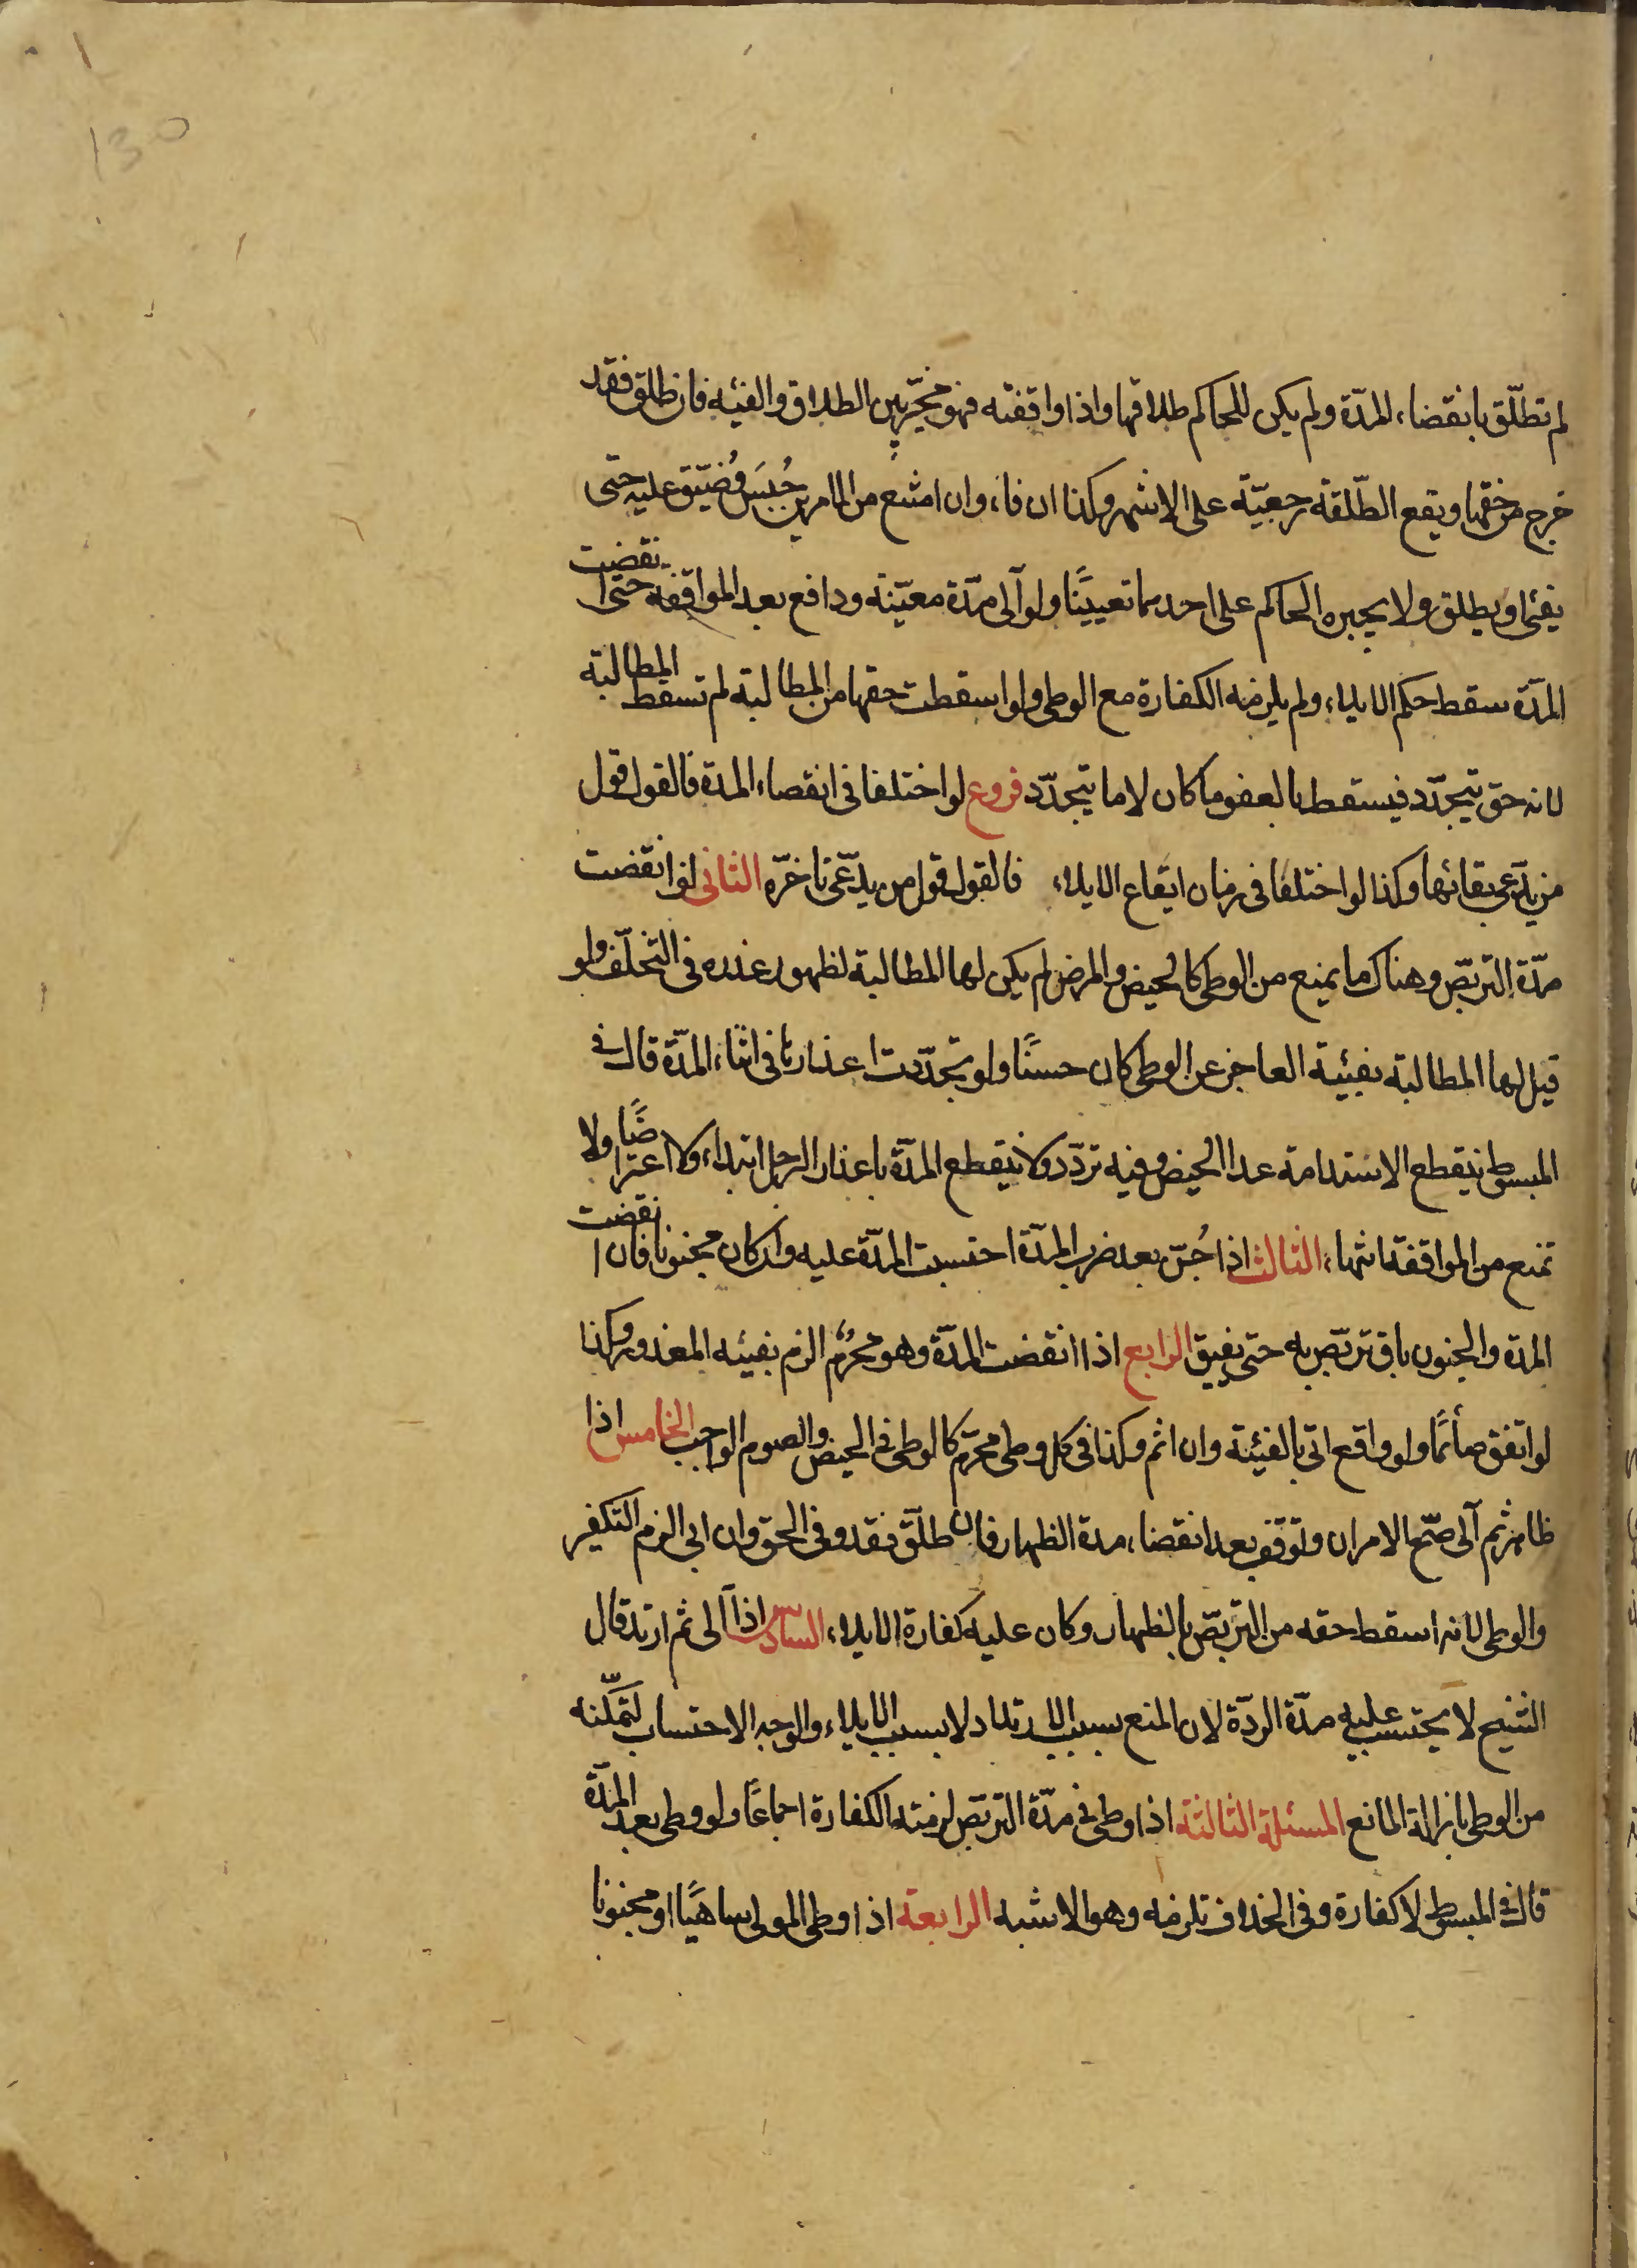 130
لم تطلّق بانقضاء المدّة ولم يكن للحاكم طلاقها واذا واقفته فهو مخيّر بين الطلاق والفئيه فان طلق فقد
خرج من حقها ويقع الطّلقة رجعيّة على الاشهر وكذا ان فاء وان امتنع من الامرين حُبِسَ وضُيّق عليه حتى
يفئ او يطلق ولا يجبره الحاكم على احدهما تعييناً ولو آلى مدّة معيّنة ودافع بعد المواقفة حتى انقضت
المدّة سقط حكم الايلاء ولم يلزمه الكفارة مع الوطى ولو اسقطت حقها من المطالبة لم تسقط المطالبة
لانه حق يتجدّد فيسقط بالعفو ما كان لا ما يتجدّد فروع لو اختلفا فى انقضاء المدة فالقول قول
من يدّعى بقائها وكذا لو اختلفا فى زمان ايقاع الايلاء فالقول قول من يدّعى تاخرّه الثانى لو انقضت
مدّة التربّص وهناك ما يمنع من الوطى كالحيض والمرض لم يكن لها المطالبة لظهور عذره فى التخلّف ولو
قيل لها المطالبة بفئية العاجز عن الوطى كان حسناً ولو تجدّدت اعذارها فى اثناء المدّة قال فى
المبسوط ينقطع الاستدامة عدا الحيض وفيه تردّد ولا ينقطع المدّة باعذار الرجل ابتداء ولا اعتراضاً ولا
تمنع من المواقفة انتهاء الثالث اذا جُنّ بعد ضرب المدّة احتسبت المدّة عليه وان كان مجنونا فان انقضت
المدة والجنون باق تربّص به حتى يفيق الرابع اذا انقضت المدّة وهو محرُم الزم بفيئه المعذور وكذا
لو اتفق صائماً ولو واقع اتى بالفيئة وان اثم وكذا فى كل وطى محرّم كالوطى فى الحيض والصوم الواجب الخامس اذا
ظاهر ثم آلى صحّ الامران وتوقف بعد انقضاء مدة الظهار فان طلّق فقد وفى الحق وان ابى الزم التكفير
والوطى لانه اسقط حقه من التربّص بالظهار وكان عليه كفارة الايلاء السادس اذا آلى ثم ارتد قال
الشيخ لا يحتسب عليه مدّة الردّة لان المنع بسبب الارتداد لا بسبب الايلاء والوجه الاحتساب لتمكّنه
من الوطى بازالة المانع المسئلة الثالثة اذا وطى فى مدّة التربّص لزمته الكفارة اجماعاً ولو وطى بعد المدّة
قال فى المبسوط لا كفارة وفى الخلاف تلزمه وهو الاشبه الرابعة اذا وطى المولى ساهياً او مجنونا